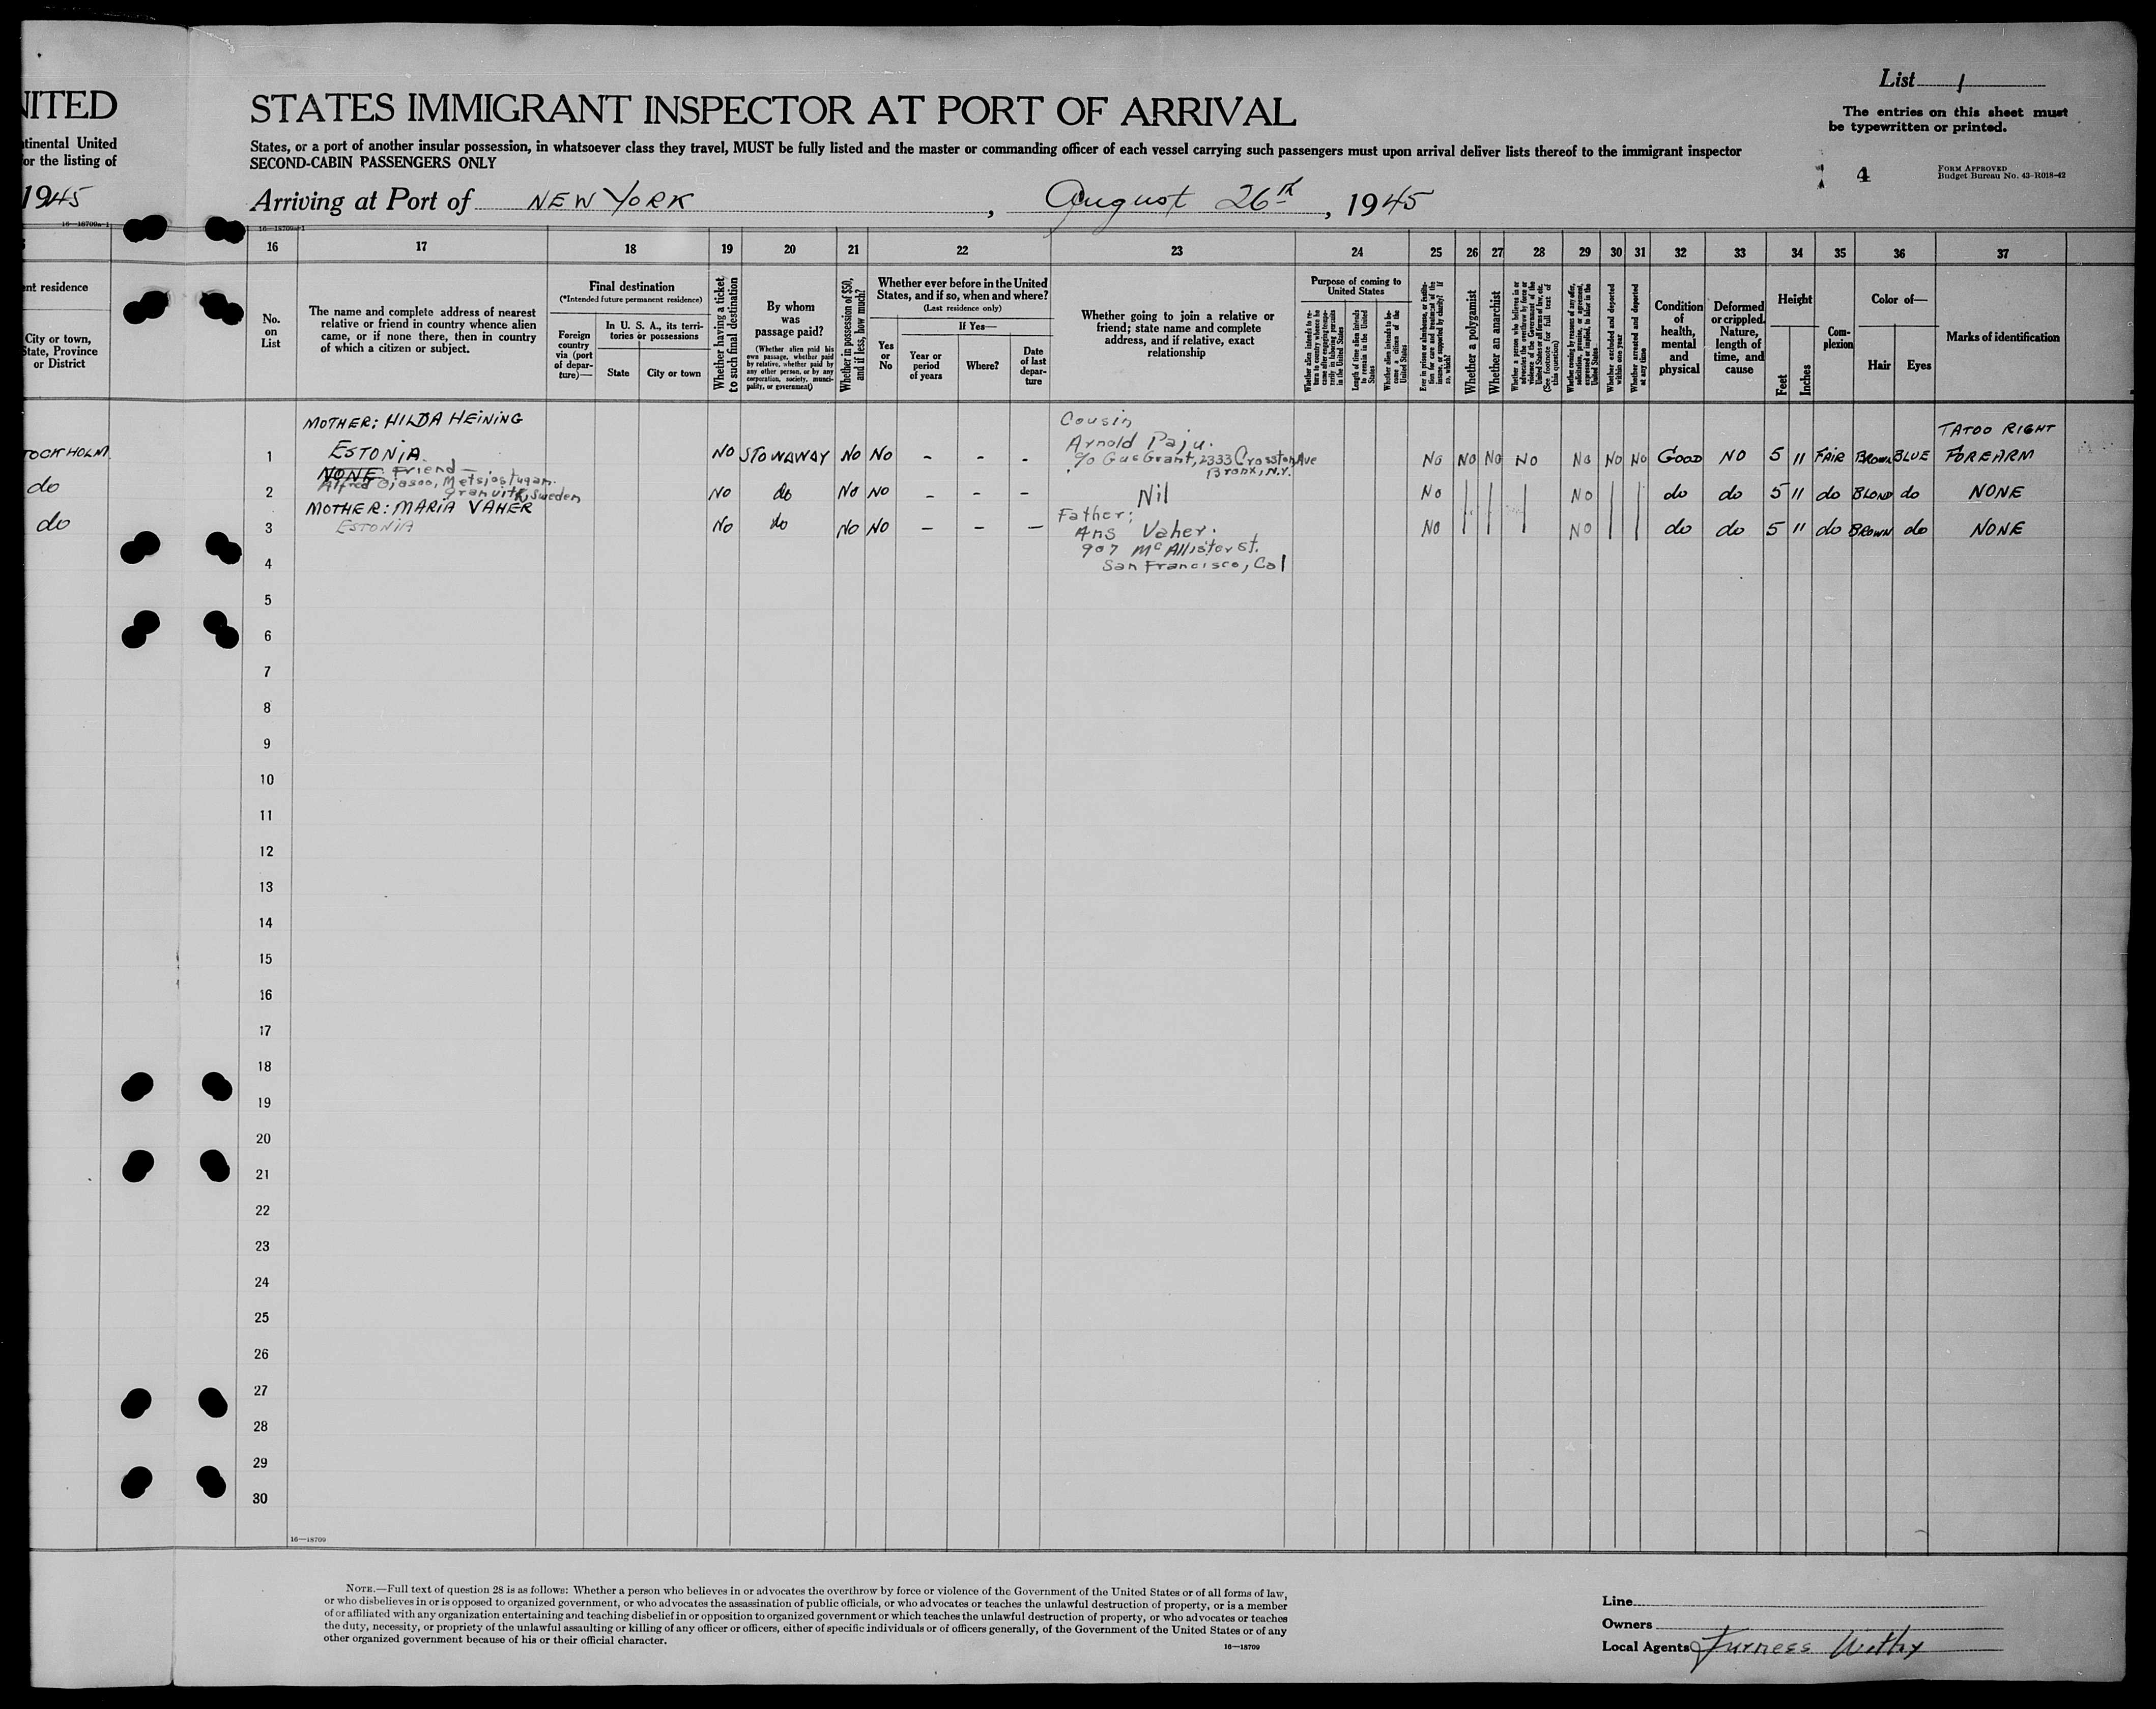 List 1
NITED
STATES IMMIGRANT INSPECTOR AT PORT OF ARRIVAL
The entries on this sheet must
be typewritten or printed.
tinental United
or the listing of
States, or a port of another insular possession, in whatsoever class they travel, MUST be fully listed and the master or commanding officer of each vessel carrying such passengers must upon arrival deliver lists thereof to the immigrant inspector
SECOND-CABIN PASSENGERS ONLY
4
FORM APPROVED
Budget Bureau No. 43-R018-42
1945
Arriving at Port of NEW YORK, August 26th, 1945
16—18709a-1
16—18709a-1
16 17 18 19 20 21 22 23 24 25 26 27 28 29 30 31 32 33 34 35 36 37
nt residence
City or town,
State, Province
or District
No.
on
List
The name and complete address of nearest
relative or friend in country whence alien
came, or if none there, then in country
of which a citizen or subject.
Final destination
(*Intended future permanent residence)
Foreign
country
via (port
of depar-
ture)—
In U. S. A., its terri-
tories or possessions
State
City or town
Whether having a ticket
to such final destination
By whom
was
passage paid?
(Whether alien paid his
own passage, whether paid
by relative, whether paid by
any other person, or by any
corporation, society, munici-
pality, or government)
Whether in possession of $50,
and if less, how much?
Whether ever before in the United
States, and if so, when and where?
(Last residence only)
Yes
or
No
If Yes—
Year or
period
of years
Where?
Date
of last
depar-
ture
Whether going to join a relative or
friend; state name and complete
address, and if relative, exact
relationship
Purpose of coming to
United States
Whether alien intends to re-
turn to country whence he
came after engaging tempo-
rarily in laboring pursuits
in the United States
Length of time alien intends
to remain in the United
States
Whether alien intends to be-
come a citizen of the
United States
Ever in prison or almshouse, or institu-
tion for care and treatment of the
insane, or supported by charity? If
so, which?
Whether a polygamist
Whether an anarchist
Whether a person who believes in or
advocates the overthrow by force or
violence of the Government of the
United States or all forms of law, etc.
(See footnote for full text of
this question)
Whether coming by reason of any offer,
solicitation, promise, or agreement,
expressed or implied, to labor in the
United States
Whether excluded and deported
within one year
Whether arrested and deported
at any time
Condition
of
health,
mental
and
physical
Deformed
or crippled.
Nature,
length of
time, and
cause
Height
Feet
Inches
Com-
plexion
Color of—
Hair
Eyes
Marks of identification
MOTHER: HILDA HEINING
Cousin
TATOO RIGHT
TOCKHOLM
1 ESTONIA NO STOWAWAY NO NO - - - Arnold Paju. NO NO NO NO NO NO NO GOOD NO 5 11 FAIR BROWN BLUE FOREARM
c/o Gus Grant, 2333 Ave
Bronx, N.Y.
NONE Friend—
Alfred Ojasoo,
Sweden
do 2 NO do NO NO - - - Nil NO NO do do 5 11 do BLOND do NONE
MOTHER: MARIA VAHER
Father;
do 3 ESTONIA NO do NO NO - - - Ans Vaher. NO NO do do 5 11 do BROWN do NONE
907 McAllister St.
San Francisco, Cal
4
5
6
7
8
9
10
11
12
13
14
15
16
17
18
19
20
21
22
23
24
25
26
27
28
29
30
16—18709
NOTE.—Full text of question 28 is as follows: Whether a person who believes in or advocates the overthrow by force or violence of the Government of the United States or of all forms of law,
or who disbelieves in or is opposed to organized government, or who advocates the assassination of public officials, or who advocates or teaches the unlawful destruction of property, or is a member
of or affiliated with any organization entertaining and teaching disbelief in or opposition to organized government or which teaches the unlawful destruction of property, or who advocates or teaches
the duty, necessity, or propriety of the unlawful assaulting or killing of any officer or officers, either of specific individuals or of officers generally, of the Government of the United States or of any
other organized government because of his or their official character.
16—18709
Line
Owners
Local Agents Furness Withy